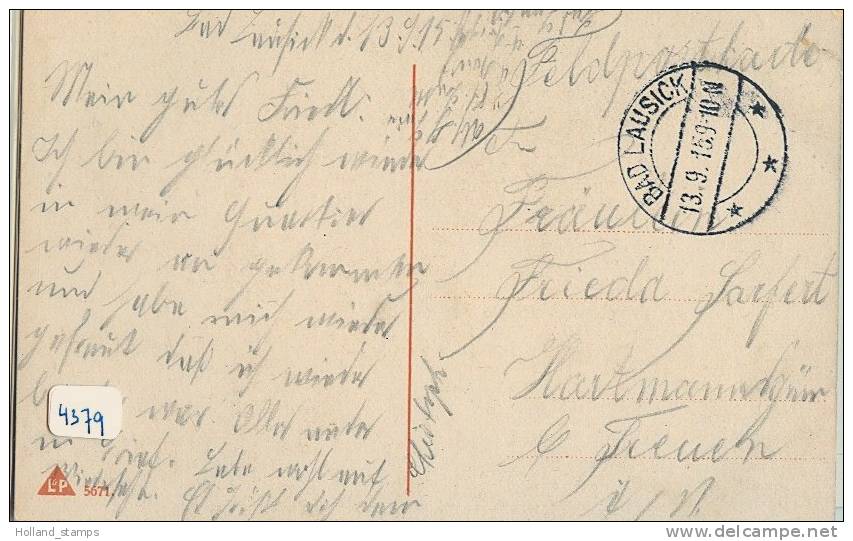 Bad Lausick d. 13.9.15.
Mein gutes Friedl.
Ich bin glücklich wieder
in mein Quartier
wieder an gekommen
und habe mich wieder
gefreut daß ich wieder
war. Alles andere
im Brief. Lebe wohl auf
Wiedersehn. Es grüßt dich dein
Feldpostkarte
Fräulein
Frieda Sarfert
Hartmannsgrün
b Treuen
i/V.
BAD LAUSICK
13.9.15.9-10N
4379
L&P
5671
Holland_stamps
delcampe.net